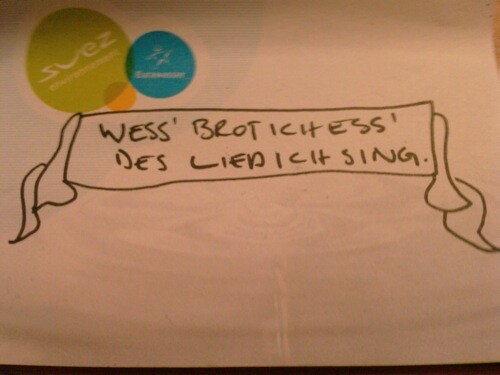 suez
environnement
Eurawasser
WESS' BROT ICH ESS'
DES LIED ICH SING.